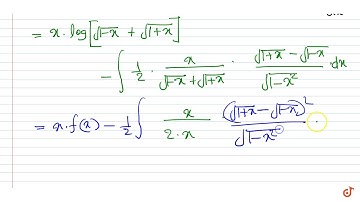 = x · log [√1-x + √1+x]
- ∫ 1/2 · x/(√1-x + √1+x) · (√1+x - √1-x)/√1-x² dx
= x · f(x) - 1/2 ∫ x/(2·x) (√1+x - √1-x)²/√1-x² ·